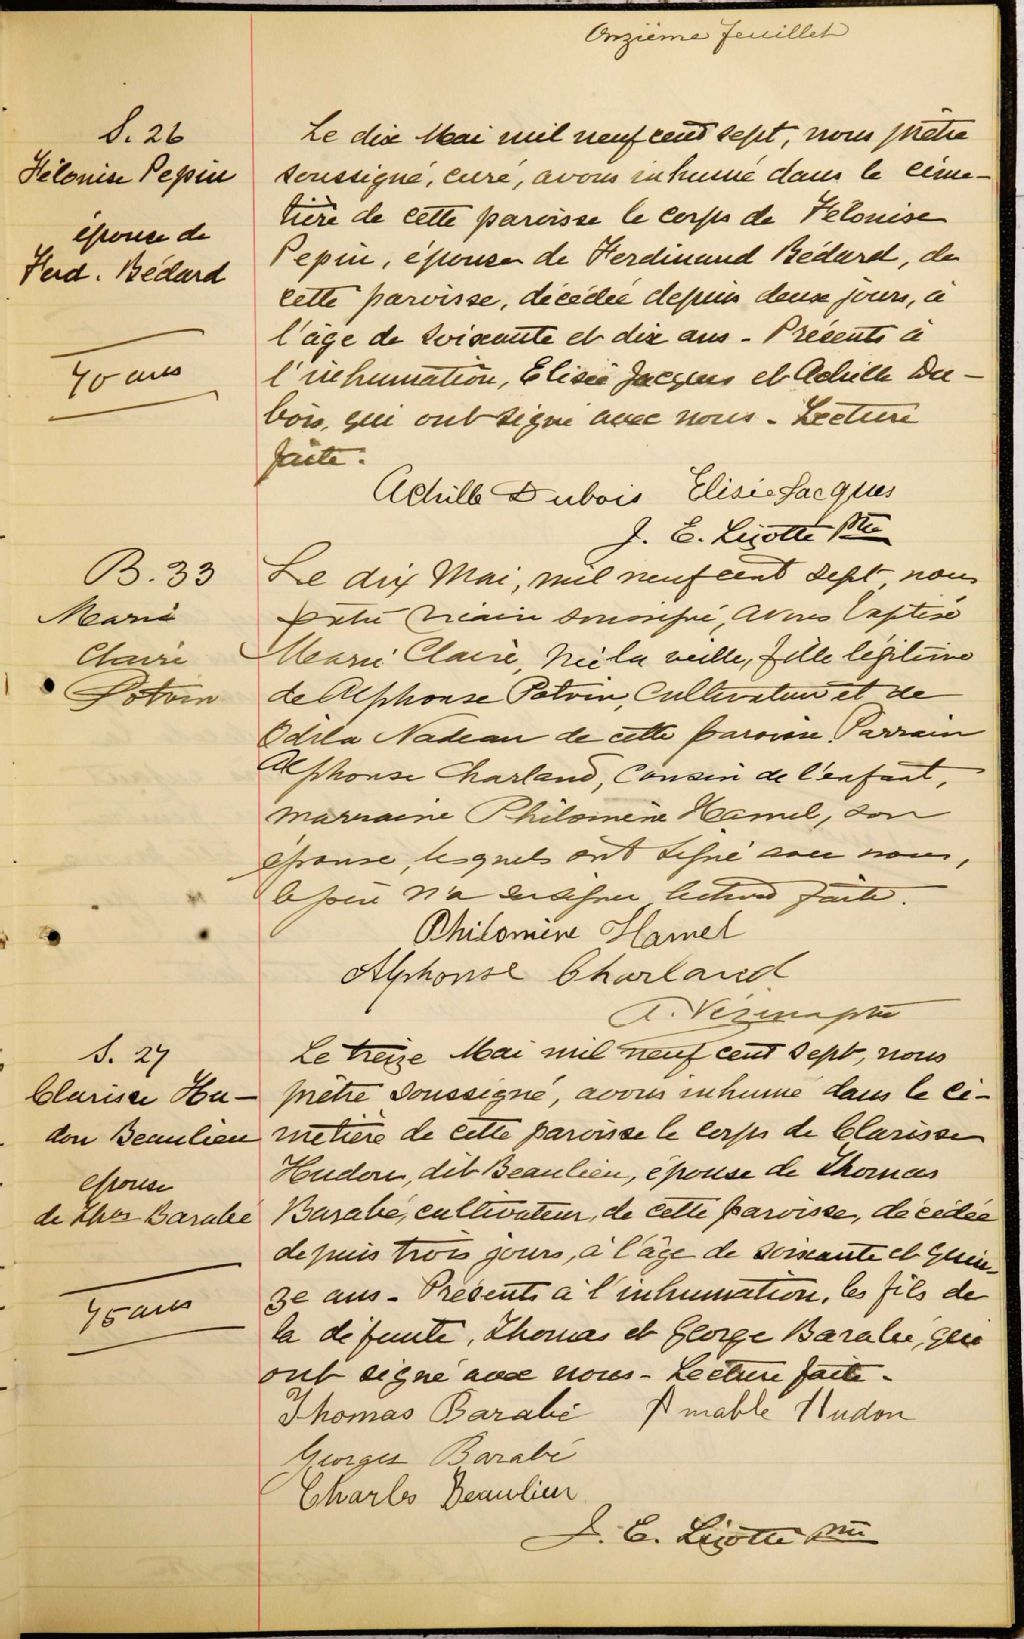 Onzième feuillet
S. 26
Félonise Pepin
épouse de
Ferd. Bédard
70 ans
Le dix Mai mil neuf cent sept, nous prêtre
soussigné, curé, avons inhumé dans le cime-
tière de cette paroisse le corps de Félonise
Pepin, épouse de Ferdinand Bédard, de
cette paroisse, décédée depuis deux jours, à
l'âge de soixante et dix ans - Présents à
l'inhumation, Elisée Jacques et Achille Du-
bois, qui ont signé avec nous - Lecture
faite.
Achille Dubois Elisée Jacques
J. E. Lizotte Ptre
B. 33
Marie
Claire
Potvin
Le dix Mai, mil neuf cent sept, nous
prêtre vicaire soussigné, avons baptisé
Marie Claire, née la veille, fille légitime
de Alphonse Potvin, Cultivateur et de
Odila Nadeau de cette paroisse. Parrain
Alphonse Charland, Cousin de l'enfant,
marraine Philomène Hamel, son
épouse, lesquels ont signé avec nous,
le père n'a su signer, lecture faite.
Philomène Hamel
Alphonse Charland
A. Vézina ptre
S. 27
Clarisse Hu-
don Beaulieu
épouse
de Thos Barabé
75 ans
Le treize Mai mil neuf cent sept, nous
prêtre soussigné, avons inhumé dans le ci-
metière de cette paroisse le corps de Clarisse
Hudon, dit Beaulieu, épouse de Thomas
Barabé, cultivateur, de cette paroisse, décédée
depuis trois jours, à l'âge de soixante et quin-
ze ans - Présents à l'inhumation, les fils de
la défunte, Thomas et George Barabé, qui
ont signé avec nous - Lecture faite -
Thomas Barabé Amable Hudon
Georges Barabé
Charles Beaulieu
J. E. Lizotte Ptre